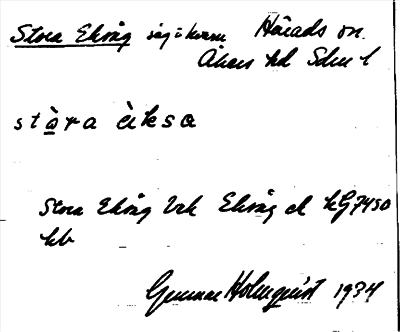 Stora Eksåg säg i kvarn Härads sn.
Åkers hd Sdm l
stàra èiksa
Stora Eksåg Eksåg el kG7450
kb
Gunnar Holmquist 1934